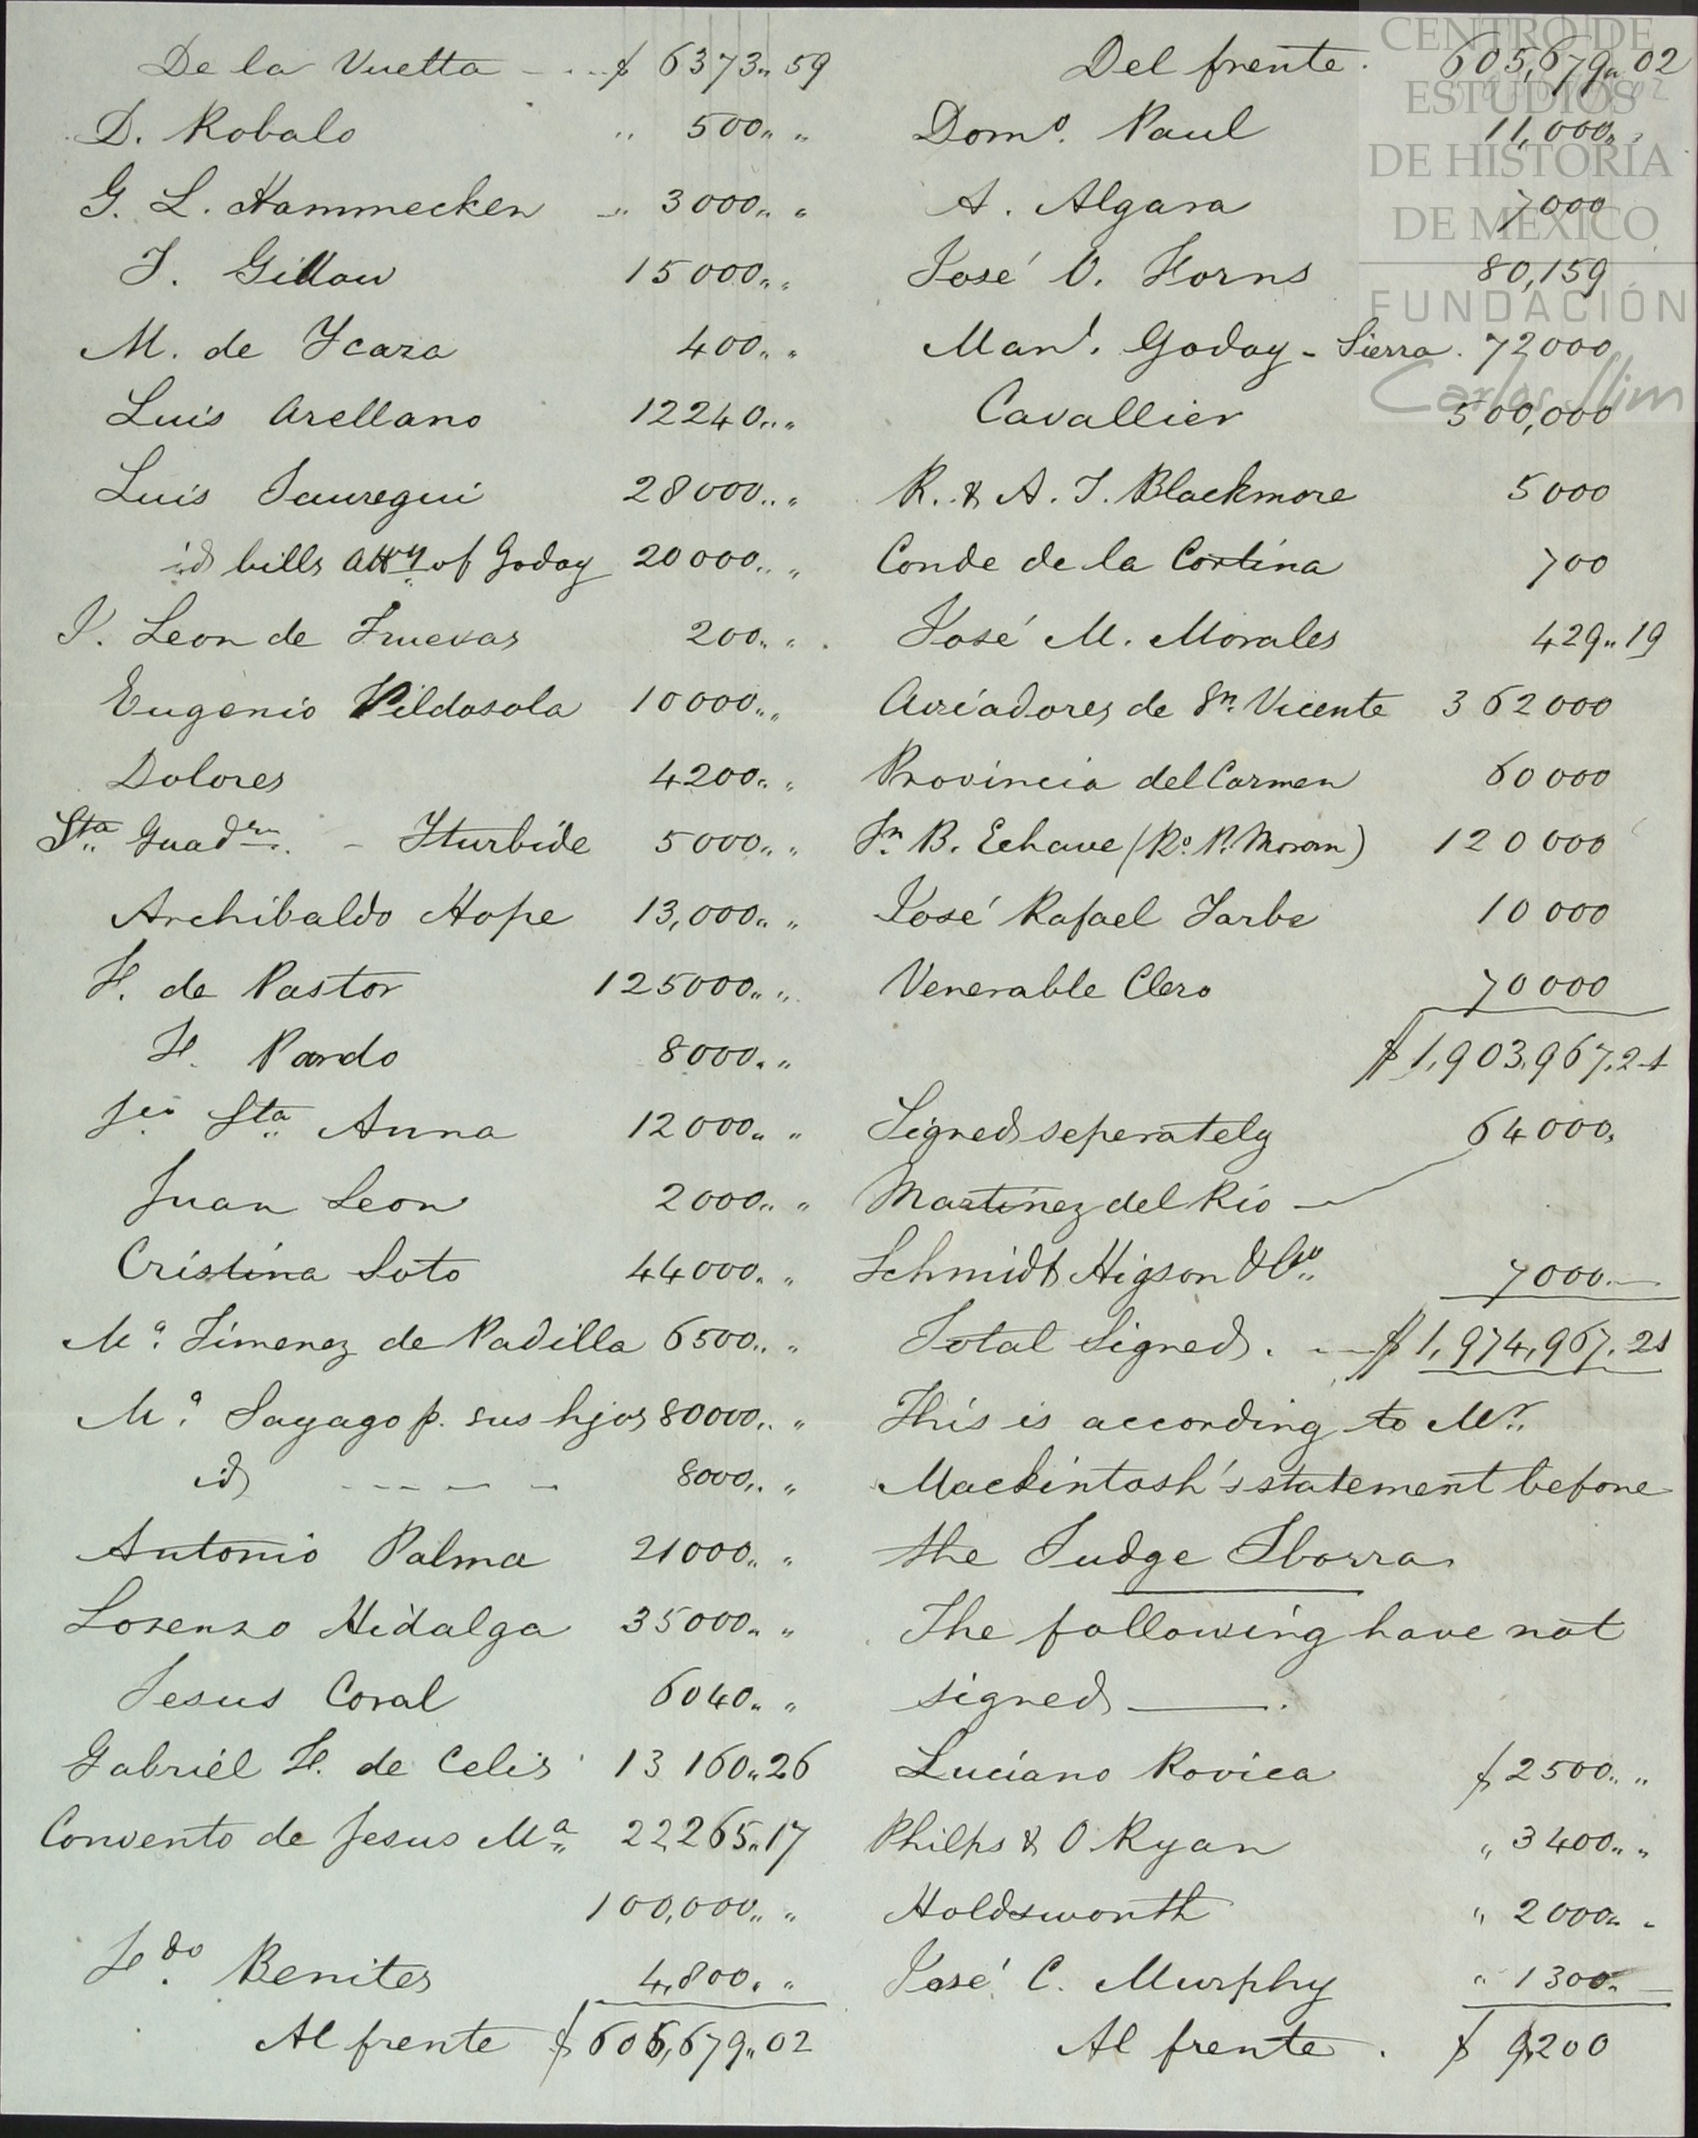 De la Vuelta - . . . $ 6373,, 59
D. Robalo ,, 500,, ,,
G. L. Hammecken ,, 3000,, ,,
J. Gillow 15000,, ,,
M. de Ycaza 400,, ,,
Luis Arellano 12240,, ,,
Luis Jauregui 28000,, ,,
id bills Atty of Goday 20000,, ,,
J. Leon de Truevas 200,, ,,
Eugenio Vildosola 10000,, ,,
Dolores 4200,, ,,
Sta Guadn. - Yturbide 5000,, ,,
Archibaldo Hope 13,000,, ,,
F. de Pastor 125000,, ,,
F. Pardo 8000,, ,,
Sta Anna 12000,, ,,
Juan Leon 2000,, ,,
Cristina Soto 44000,, ,,
Ma. Jimenez de Padilla 6500,, ,,
Ma. Sayago p. sus hjos 80000,, ,,
id - - - - - 8000,, ,,
Antonio Palma 21000,, ,,
Lorenzo Hidalga 35000,, ,,
Jesus Coral 6040,, ,,
Gabriél F. de Celis 13160,,26
Convento de Jesus Ma. 22265,,17
100,000,, ,,
Fdo. Benites 4,800,, ,,
Al frente $ 605,679,,02
Del frente. 605,679,,02
Domo. Paul 11,000,, ,,
A. Algara 7000
José V. Forns 80,159
Manl. Goday - Sierra. 72000
Cavallier 500,000
R. & A. J. Blackmore 5000
Conde de la Cortina 700
José M. Morales 429,,19
Aviadores de Sn. Vicente 362000
Provincia del Carmen 60000
Jn. B. Echave (Ro. P. Moran) 120000
José Rafael Jarbe 10000
Venerable Clero 70000
$ 1,903,967,21
Signed seperately 64000,
Martinez del Rio —
Schmidt Higson & Co. 7000.—
Total Signed. . — $ 1,974,967.21
This is according to Mr.
Mackintosh's statement before
the Judge Iborra
The following have not
signed ——.
Luciano Rovica $ 2500,, ,,
Philps & O Ryan ,, 3400,, ,,
Holdsworth ,, 2000,, ,,
José C. Murphy ,, 1300,, —
Al frente. $ 9,200
CENTRO DE
ESTUDIOS
DE HISTORIA
DE MÉXICO
FUNDACIÓN
Carlos Slim